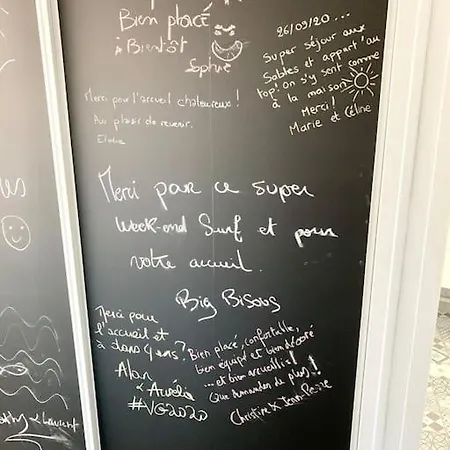 Bien placé
à Bientôt
Sophie
26/09/20...
Super séjour aux
Sables et appart' au
top! On s'y sent comme
à la maison
Merci!
Marie et Céline
Merci pour l'accueil chaleureux!
Au plaisir de revenir.
Elodie
Merci par ce super
week-end Surf et pour
votre accueil.
Big Bisous
Merci pour
l'accueil et
à dans 4 ans?
Alan
& Aurélie
#VG2020
Bien placé, confortable,
bien équipé et bien décoré
... et bien accueillis!
Que demander de plus!!
Christine & Jean-Pierre
& Laurent